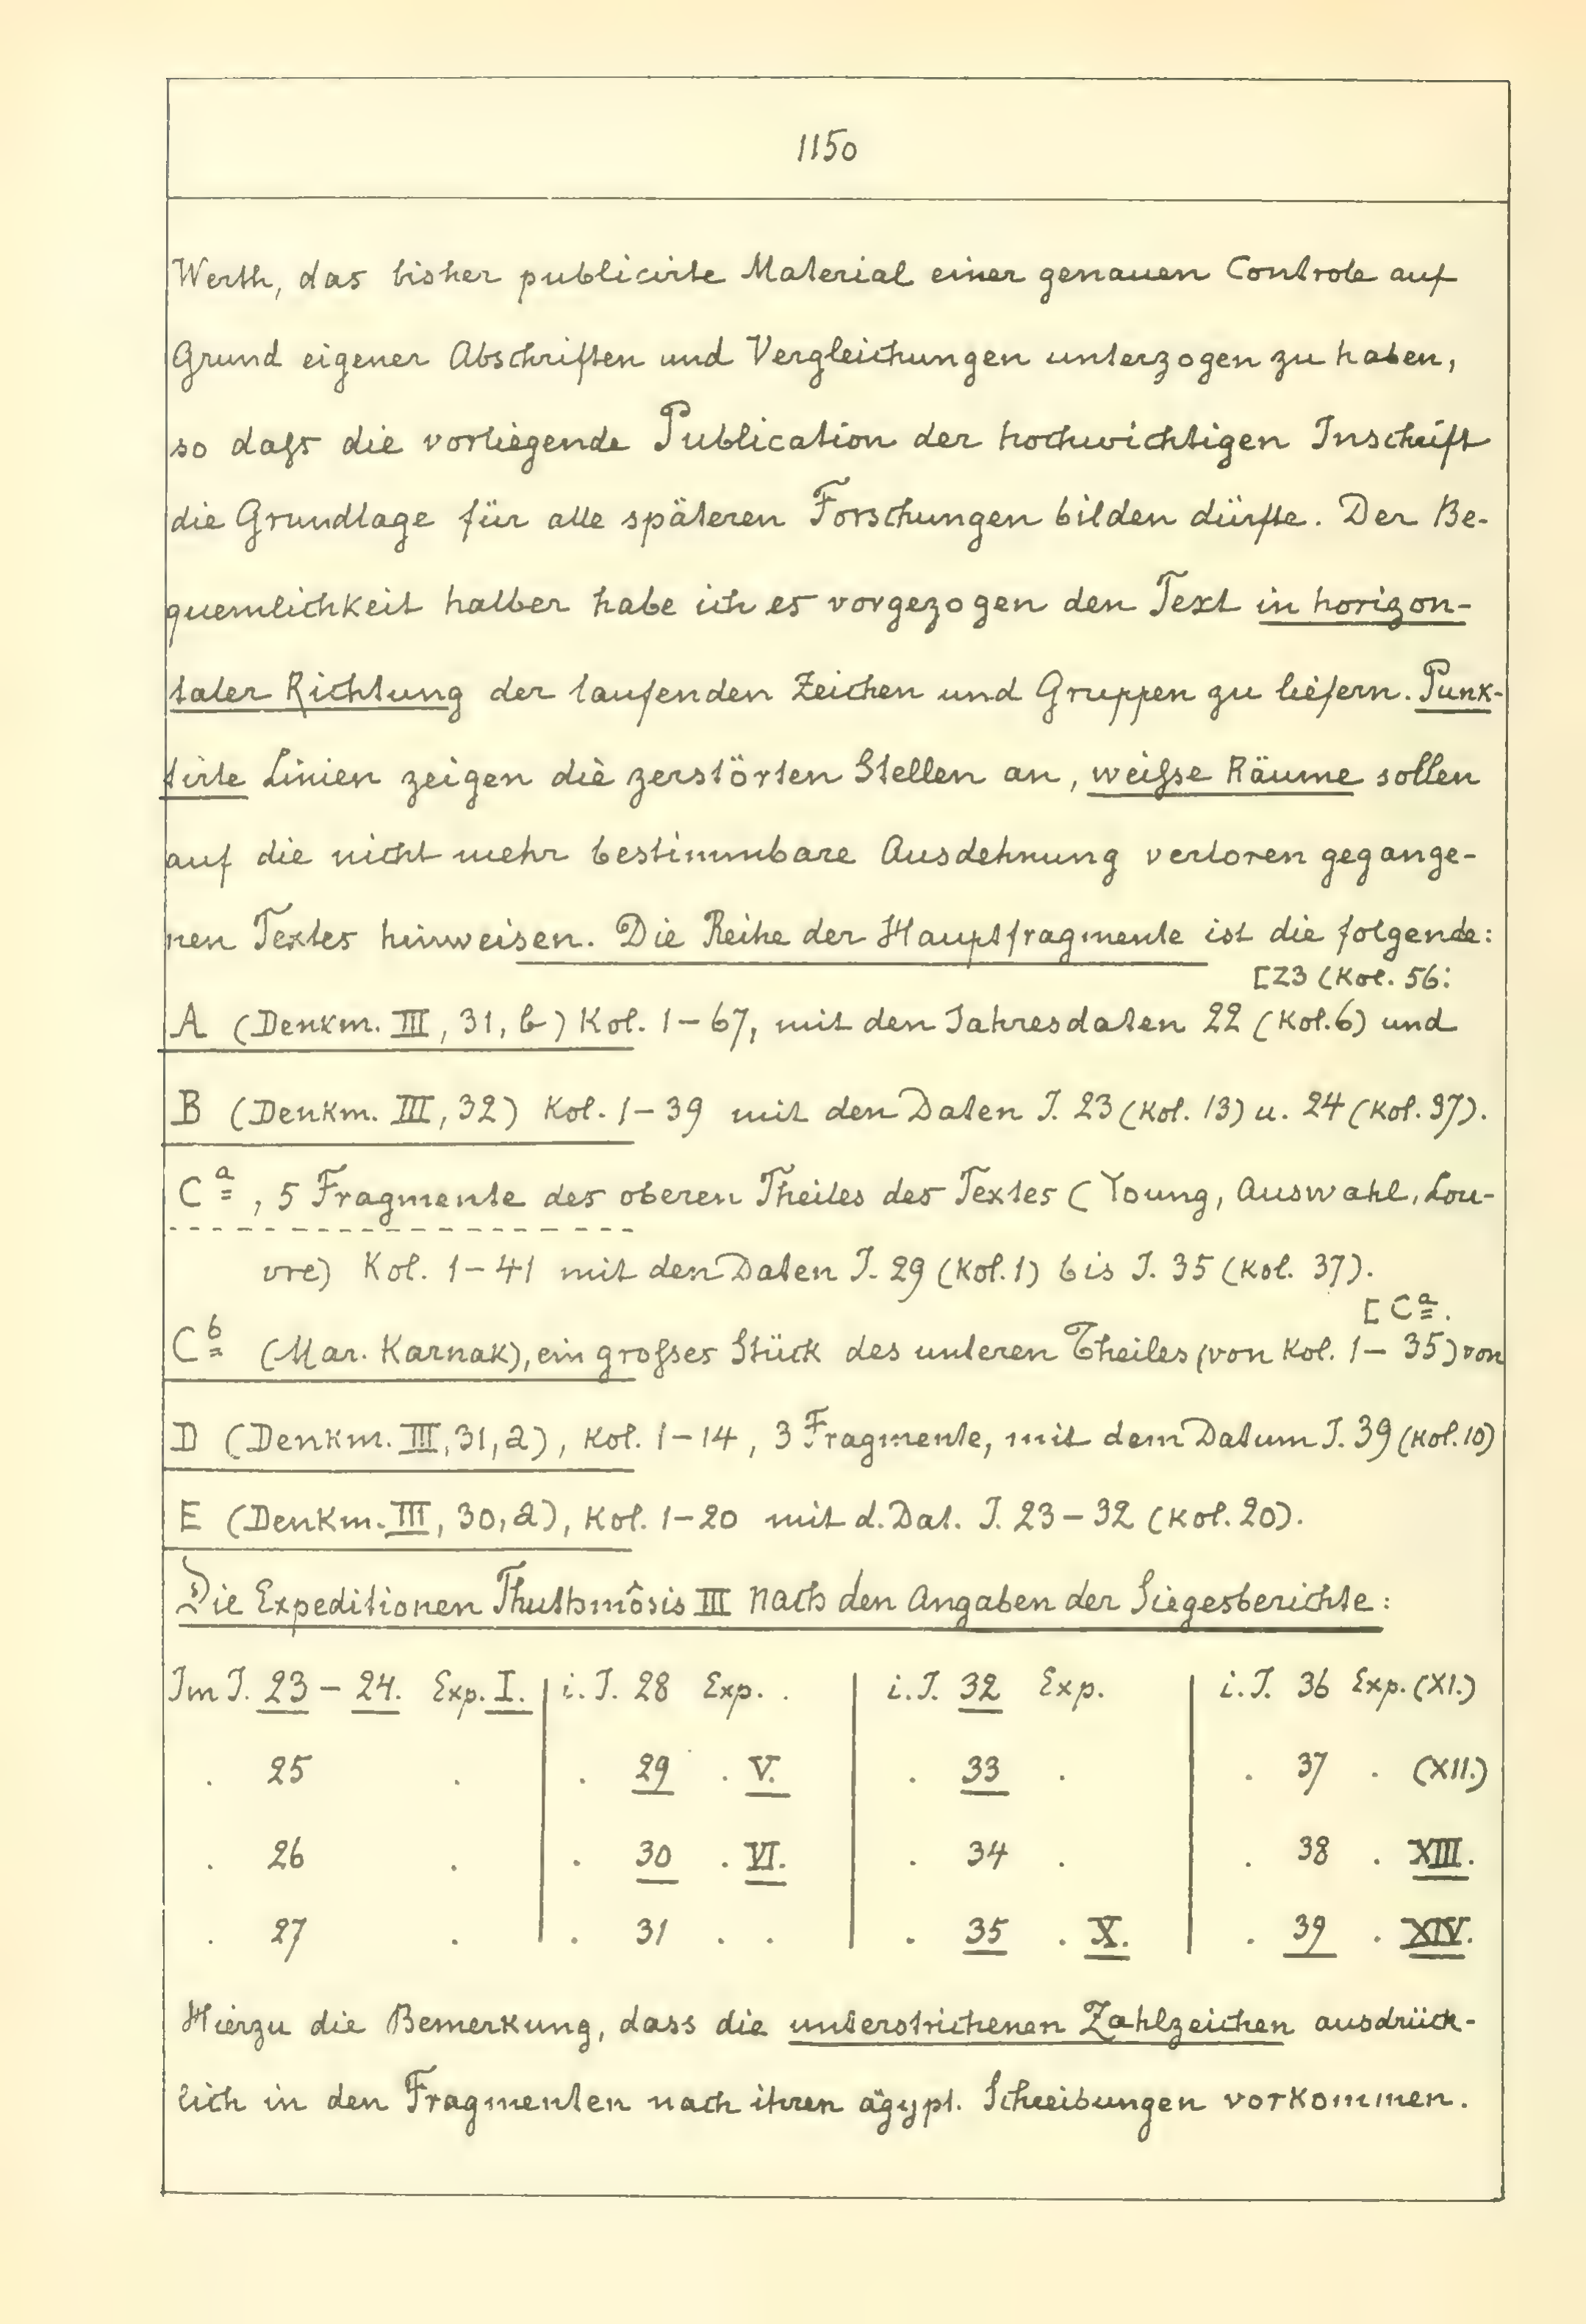 1150
Werth, das bisher publicirte Material einer genauen Controle auf
Grund eigener Abschriften und Vergleichungen unterzogen zu haben,
so daſs die vorliegende Publication der hochwichtigen Inschrift
die Grundlage für alle späteren Forschungen bilden dürfte. Der Be-
quemlichkeit halber habe ich es vorgezogen den Text in horizon-
taler Richtung der laufenden Zeichen und Gruppen zu liefern. Punk-
tirte Linien zeigen die zerstörten Stellen an, weiſse Räume sollen
auf die nicht mehr bestimmbare Ausdehnung verloren gegange-
nen Textes hinweisen. Die Reihe der Hauptfragmente ist die folgende:
[23 (Kol. 56:
A (Denkm. III, 31, b) Kol. 1-67, mit den Jahresdaten 22 (Kol. 6) und
B (Denkm. III, 32) Kol. 1-39 mit den Daten J. 23 (Kol. 13) u. 24 (Kol. 37).
C a, 5 Fragmente des oberen Theiles des Textes (Young, Auswahl, Lou-
vre) Kol. 1-41 mit den Daten J. 29 (Kol. 1) bis J. 35 (Kol. 37).
[C a.
C b (Mar. Karnak), ein groſses Stück des unteren Theiles (von Kol. 1-35) von
D (Denkm. III, 31, a), Kol. 1-14, 3 Fragmente, mit dem Datum J. 39 (Kol. 10)
E (Denkm. III, 30, a), Kol. 1-20 mit d. Dat. J. 23-32 (Kol. 20).
Die Expeditionen Thuthmôsis III nach den Angaben der Siegesberichte:
Im J. 23-24. Exp. I. i. J. 28 Exp. . i. J. 32 Exp. i. J. 36 Exp. (XI.)
. 25 . . 29 . V. . 33 . . 37 . (XII.)
. 26 . . 30 . VI. . 34 . . 38 . XIII.
. 27 . . 31 . . . 35 . X. . 39 . XIV.
Hierzu die Bemerkung, dass die unterstrichenen Zahlzeichen ausdrück-
lich in den Fragmenten nach ihren ägypt. Schreibungen vorkommen.